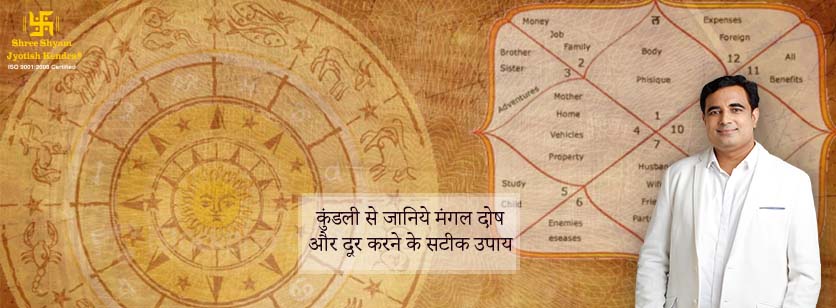 Shree Shyam
Jyotish Kendra®
ISO 9001:2008 Certified
Money
Job
Family
2
3
Brother
Sister
Adventures
ल
Body
Phisique
1
Expenses
Foreign
12
11
All
Benefits
Mother
Home
Vehicles
Property
4
7
10
Study
Child
5
6
Enemies
eseases
Husban
Wif
Frie
Part
कुंडली से जानिये मंगल दोष
और दूर करने के सटीक उपाय